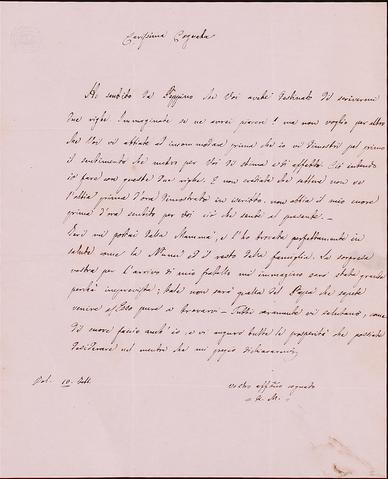 Carissima Cognata
Ho sentito da Peppino che Voi avete destinato di scrivermi
due righe. Immaginate se ne avrei piacere! ma non voglio per altro
che Voi vi abbiate ad incomodare prima che io vi dimostri pel primo
il sentimento che nutro per Voi di stima e di affetto. Ciò intendo
io fare con queste due righe. E non crediate che sebbene non ve
l'abbia prima d'ora dimostrato in iscritto, non abbia il mio cuore
prima d'ora sentito per voi ciò che sente al presente.
Ieri mi portai dalla Mamma, e l'ho trovata perfettamente in
salute come la Mimì ed il resto della famiglia. La sorpresa
vostra per l'arrivo di mio fratello mi immagino sarà stata grande
perchè imprevista; tale non sarà quella del Papà che sapete
venire esso pure a trovarvi. Tutti caramente vi salutano, come
di cuore faccio anch'io, e vi auguro tutte le prosperità che possiate
desiderare nel mentre che mi pregio dichiararmi
Bol. 10. Feb.
Vostro affmo cognato
A. M.